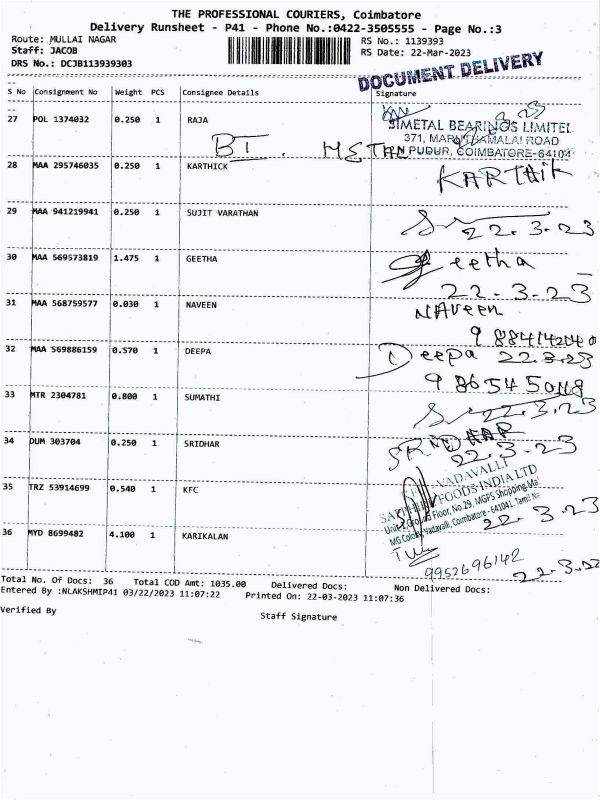 THE PROFESSIONAL COURIERS, Coimbatore
Delivery Runsheet - P41 - Phone No.:0422-3505555 - Page No.:3
Route: MULLAI NAGAR
Staff: JACOB
DRS No.: DCJB113939303
RS No.: 1139393
RS Date: 22-Mar-2023
DOCUMENT DELIVERY
S No Consignment No Weight PCS Consignee Details Signature
27 POL 1374032 0.250 1 RAJA
SIMETAL BEARINGS LIMITED
371, MARUTHAMALAI ROAD
N PUDUR, COIMBATORE-64104
BT. METAL
28 MAA 295746035 0.250 1 KARTHICK
KARTHIK
29 MAA 941219941 0.250 1 SUJIT VARATHAN
22.3.23
30 MAA 569573819 1.475 1 GEETHA
Geetha
22.3.23
31 MAA 568759577 0.030 1 NAVEEN
NAveen
32 MAA 569886159 0.570 1 DEEPA
Deepa 22.3.23
33 MTR 2304781 0.800 1 SUMATHI
22.3.23
34 DUM 303704 0.250 1 SRIDHAR
SRIDHAR
22.3.23
35 TRZ 53914699 0.540 1 KFC
VADAVALLI
FOODS INDIA LTD
Floor, No.29, MGPS Shopping Mal
MG Colony Vadavalli, Coimbatore - 641041. Tamil Na
22.3.23
36 MYD 8699482 4.100 1 KARIKALAN
9952696142
22.3.23
Total No. Of Docs: 36 Total COD Amt: 1035.00 Delivered Docs: Non Delivered Docs:
Entered By :NLAKSHMIP41 03/22/2023 11:07:22 Printed On: 22-03-2023 11:07:36
Verified By Staff Signature